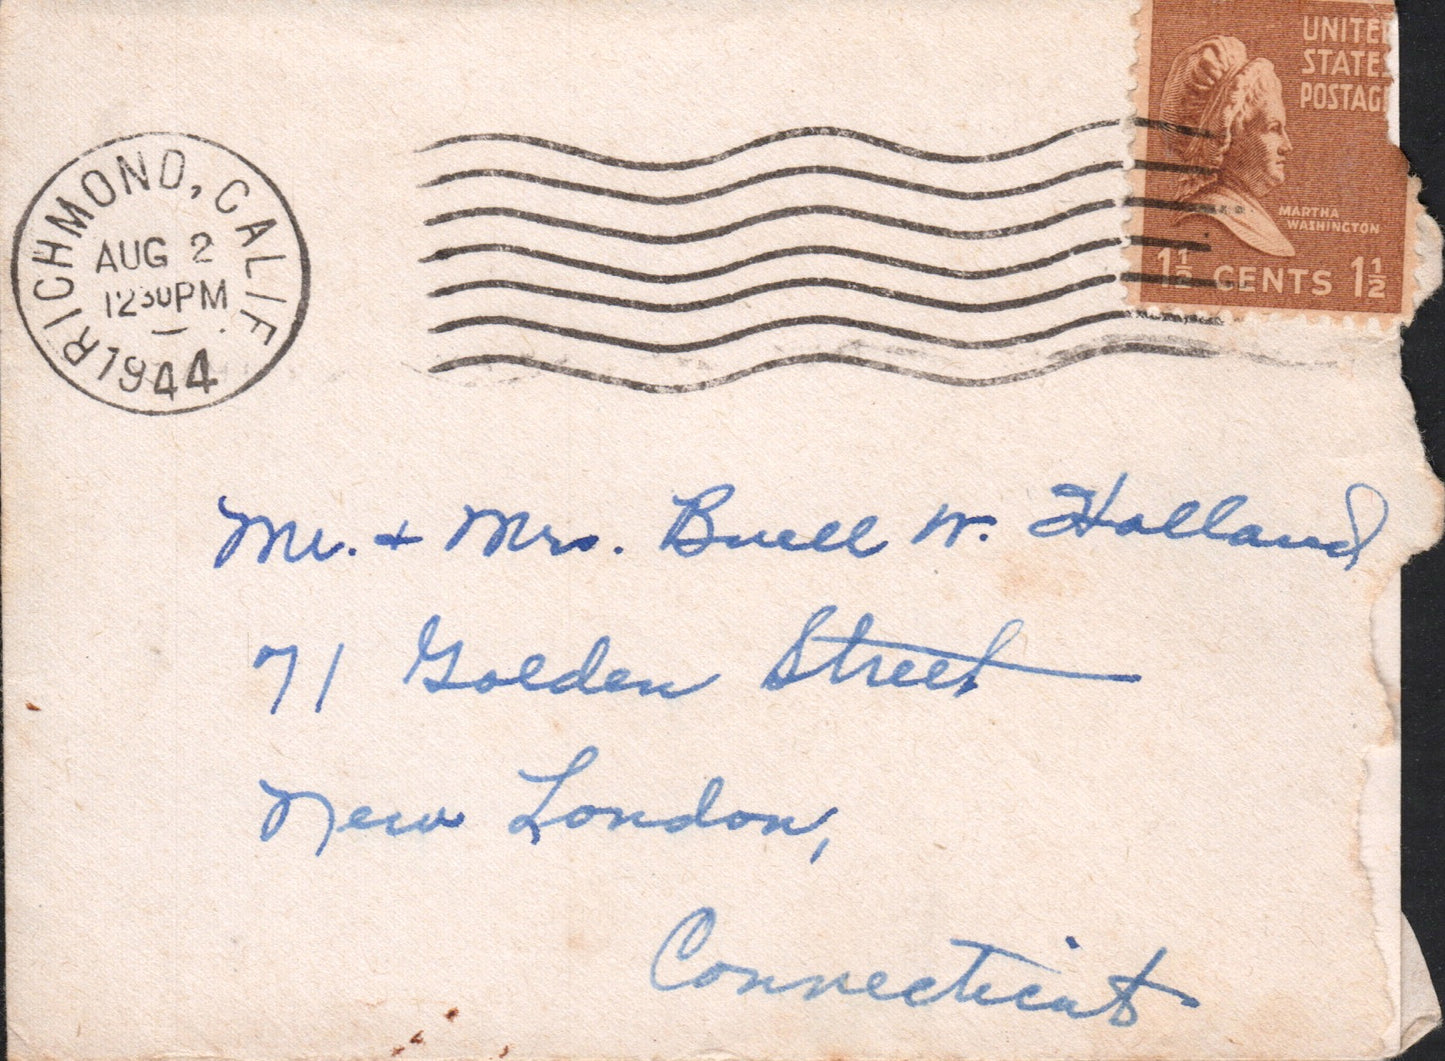 RICHMOND, CALIF.
AUG 2
12 30 PM
1944
UNITED
STATES
POSTAGE
MARTHA
WASHINGTON
1½ CENTS 1½
Mr. + Mrs. Buell W. Holland
71 Golden Street
New London,
Connecticut